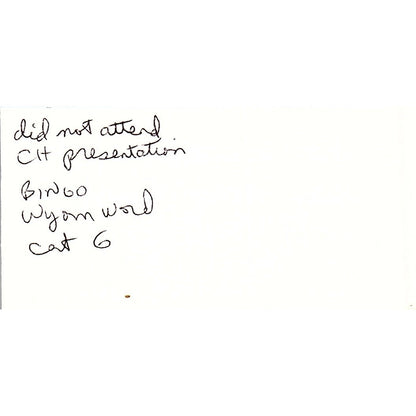 did not attend
CH presentation
BINGO
Wyom word
cat 6